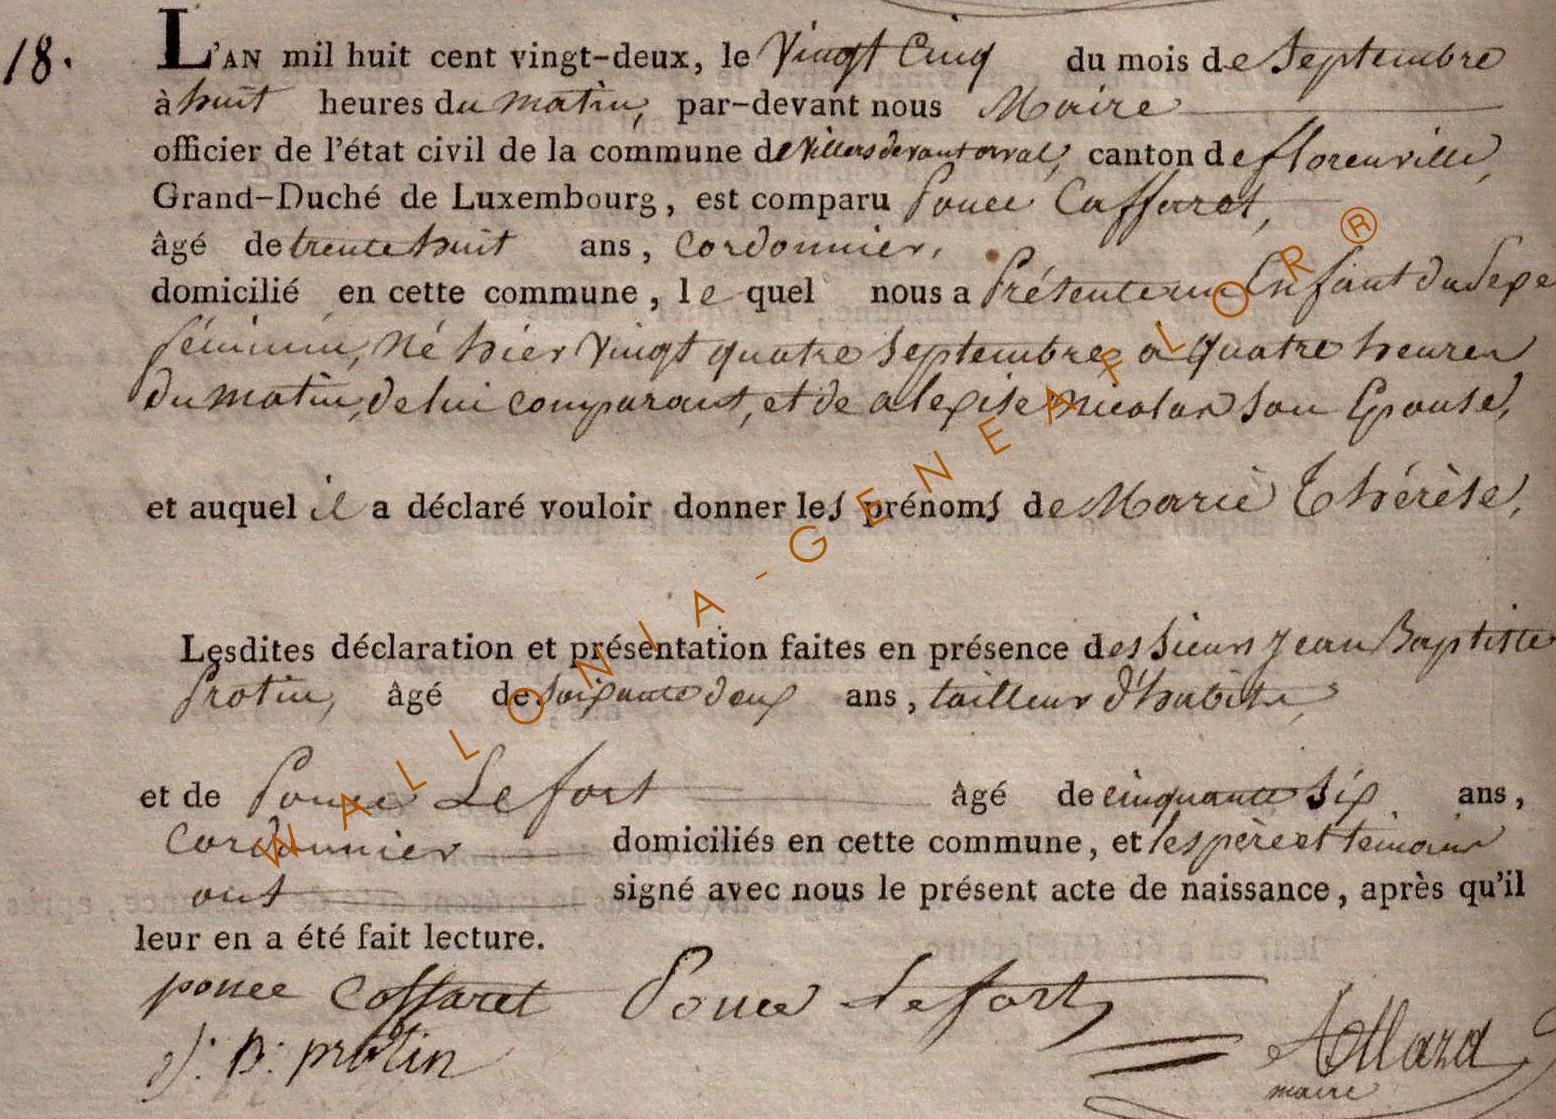 18.
L'AN mil huit cent vingt-deux, le Vingt Cinq du mois de Septembre
à huit heures du matin, par-devant nous Maire
officier de l'état civil de la commune de Villers devant orval, canton de florenville,
Grand-Duché de Luxembourg, est comparu Ponce Cafferet,
âgé de trente huit ans, Cordonnier,
domicilié en cette commune, le quel nous a Présenté un Enfant du Sexe
féminin, né hier Vingt quatre Septembre a quatre heures
du matin, de lui comparant, et de alexise nicolas Son Epouse,
et auquel il a déclaré vouloir donner les prénoms de Marie Thérèse,
Lesdites déclaration et présentation faites en présence des Sieurs Jean Baptiste
Protin, âgé de Soixante deux ans, tailleur d'habits,
et de Ponce Lefort âgé de cinquante Six ans,
Cordonnier domiciliés en cette commune, et les père et témoins
ont signé avec nous le présent acte de naissance, après qu'il
leur en a été fait lecture.
ponce Coffaret Ponce Lefort
J: B: protin Allard
maire
WALLONIA-GENEAFLOR®